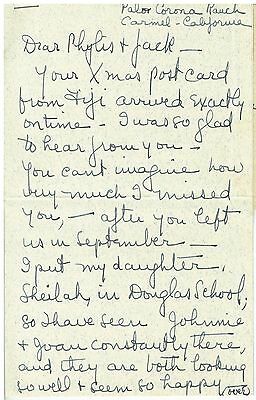 Palor Corona Ranch
Carmel - California
Dear Phylis & Jack -
Your Xmas postcard
from Fiji arrived exactly
on time - I was so glad
to hear from you -
You can't imagine how
very much I missed
you, - after you left
us in September -
I put my daughter,
Sheilah, in Douglas School,
so I have seen Johnnie
& Joan constantly there,
and they are both looking
so well & seem so happy
(over)